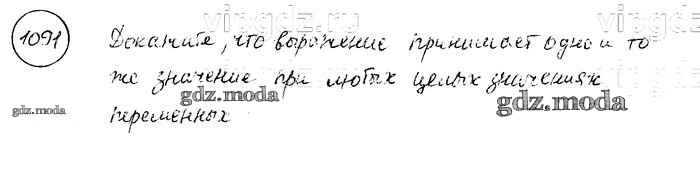 vingdz.ru
1091 Докажите, что выражение принимает одно и то
же значение при любых целых значениях
gdz.moda gdz.moda
gdz.moda переменных